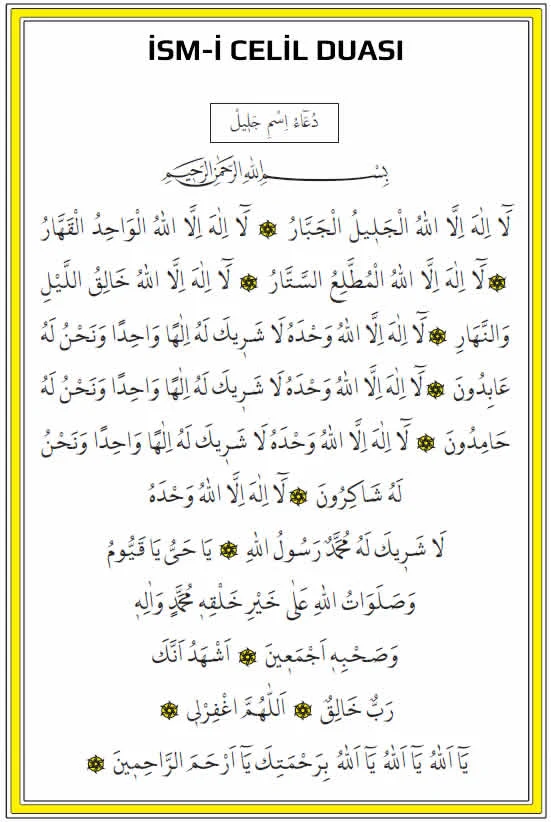 İSM-İ CELİL DUASI
دُعَٓاءُ اِسْمِ جَلِيلْ
بِسْمِ اللهِ الرَّحْمٰنِ الرَّحِيمِ
لَٓا اِلٰهَ اِلَّا اللهُ الْجَلِيلُ الْجَبَّارُ ۞ لَٓا اِلٰهَ اِلَّا اللهُ الْوَاحِدُ الْقَهَّارُ
۞ لَٓا اِلٰهَ اِلَّا اللهُ الْمُطَّلِعُ السَّتَّارُ ۞ لَٓا اِلٰهَ اِلَّا اللهُ خَالِقُ اللَّيْلِ
وَالنَّهَارِ ۞ لَٓا اِلٰهَ اِلَّا اللهُ وَحْدَهُ لَا شَرِيكَ لَهُ اِلٰهًا وَاحِدًا وَنَحْنُ لَهُ
عَابِدُونَ ۞ لَٓا اِلٰهَ اِلَّا اللهُ وَحْدَهُ لَا شَرِيكَ لَهُ اِلٰهًا وَاحِدًا وَنَحْنُ لَهُ
حَامِدُونَ ۞ لَٓا اِلٰهَ اِلَّا اللهُ وَحْدَهُ لَا شَرِيكَ لَهُ اِلٰهًا وَاحِدًا وَنَحْنُ
لَهُ شَاكِرُونَ ۞ لَٓا اِلٰهَ اِلَّا اللهُ وَحْدَهُ
لَا شَرِيكَ لَهُ مُحَمَّدٌ رَسُولُ اللهِ ۞ يَا حَىُّ يَا قَيُّومُ
وَصَلَوَاتُ اللهِ عَلٰى خَيْرِ خَلْقِهِ مُحَمَّدٍ وَاٰلِهِ
وَصَحْبِهِ اَجْمَعِينَ ۞ اَشْهَدُ اَنَّكَ
رَبٌّ خَالِقٌ ۞ اَللّٰهُمَّ اغْفِرْلِى ۞
يَٓا اَللهُ يَٓا اَللهُ يَٓا اَللهُ بِرَحْمَتِكَ يَٓا اَرْحَمَ الرَّاحِمِينَ ۞